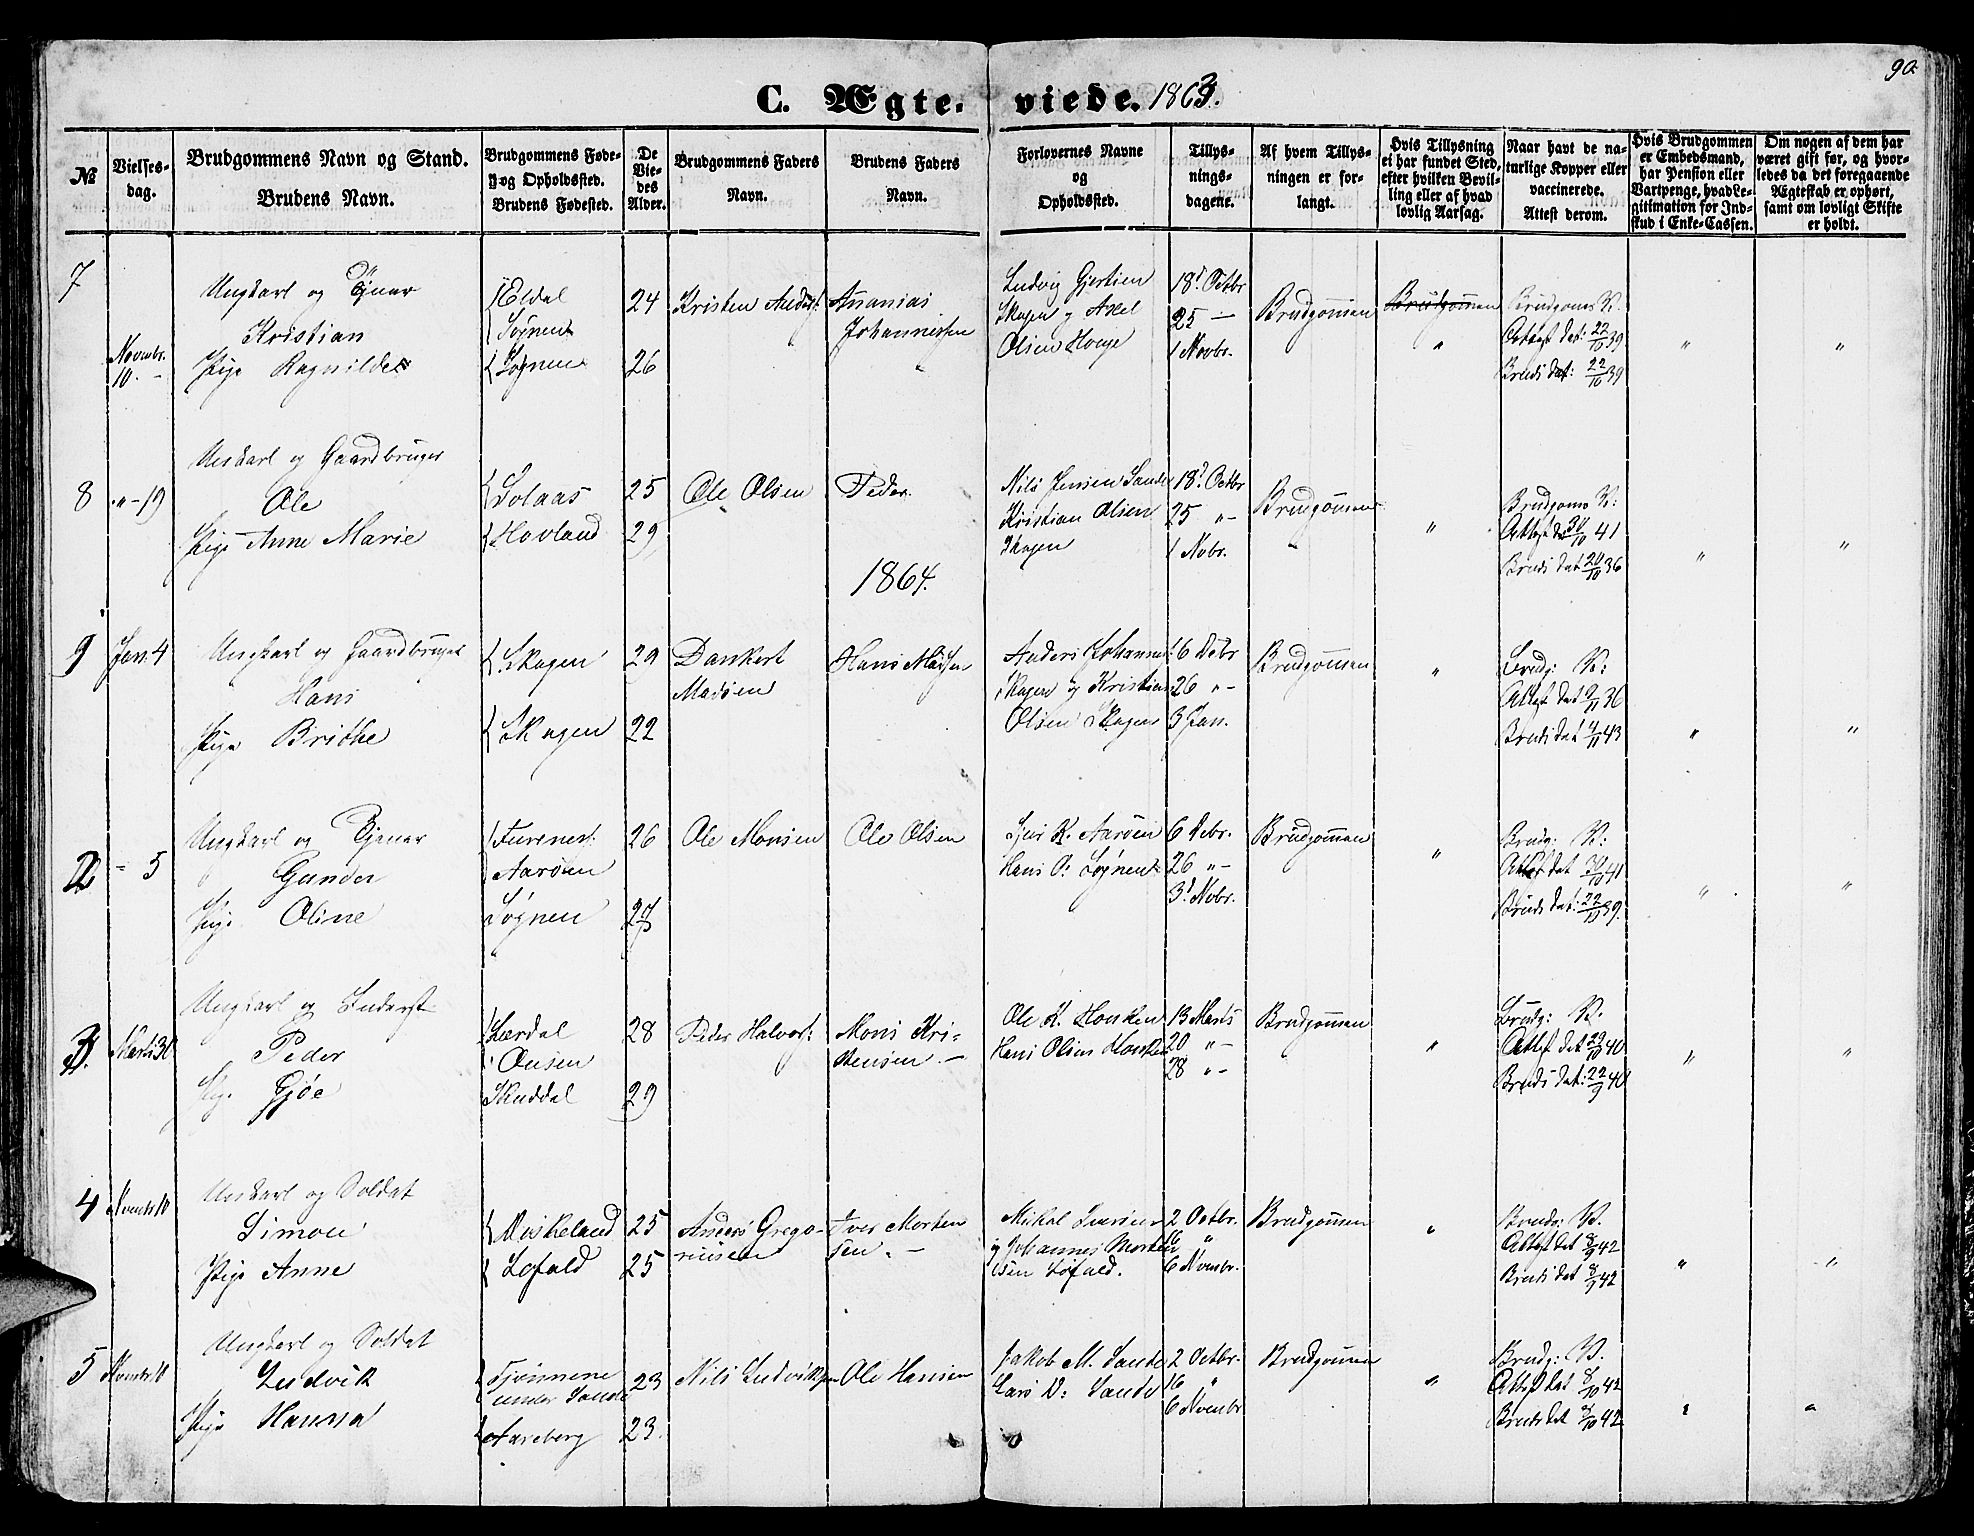 90.
C. Ægte. viede. 1863.
№
Vielses-
dag.
Brudgommens Navn og Stand.
Brudens Navn.
Brudgommens Føde-
og Opholdssted.
Brudens Fødested.
De
Vie-
des
Alder.
Brudgommens Faders
Navn.
Brudens Faders
Navn.
Forlovernes Navne
og
Opholdssted.
Tillys-
nings-
dagene.
Af hvem Tillys-
ningen er for-
langt.
Hvis Tillysning
ei har fundet Sted,
efter hvilken Bevil-
ling eller af hvad
lovlig Aarsag.
Naar havt de na-
turlige Kopper eller
vaccinerede.
Attest derom.
Hvis Brudgommen
er Embedsmand,
har Pension eller
Vartpenge, hvad Le-
gitimation for Ind-
skud i Enke-Cassen.
Om nogen af dem har
været gift før, og hvor-
ledes da det foregaaende
Ægteskab er ophørt,
samt om lovligt Skifte
er holdt.
7
Novmbr.
10. –
Ungkarl og Tjener
Kristian
Pige Ragnilde
Eldal
Søgnen
Søgnen
24
26
Kristen Anders:
Ananias
Johannessen
Ludvig Gjertsen
Skagen og Axel
Olsen Houge
18d Octbr
25 –
1 Novbr.
Brudgommen
Brudgommen
"
Brudgoms V:
Attest dat: 22/10 39
Bruds dat: 22/10 39
"
"
8
" – 19
Ungkarl og Gaardbruger
Ole
Pige Anne Marie
Solaas
Hovland
25
29
Ole Olsen
Peder
Nils Jensen Sande
Kristian Olsen
Skagen
18d Octbr
25 " –
1 Nobr.
Brudgommen
"
Brudgoms V:
Attest d: 30/10 41
Bruds dat 20/10 36
"
"
1864.
9
Jan. 4
Ungkarl og Gaardbruger
Hans
Pige Brithe
Skagen
Skagen
29
22
Dankert
Madsen
Hans Madsen
Anders Johannes:
Skagen og Kristian
Olsen Skagen
6 Debr
26 " –
3 Jan.
Brudgommen
"
Brudg: V:
Attest dat 2/11 36
Bruds dat 4/11 43
"
"
2
– 5
Ungkarl og Tjener
Gunder
Pige Oline
Furenes:
Aarøen
Søgnen
26
27
Ole Monsen
Ole Olsen
Sjur K. Aarøen
Hans P: Søgnen
6 Debr.
26 " –
3d Nobr.
Brudgommen
"
Brudg: V:
Attest dat 30/10 41
Bruds dat: 22/10 39.
"
"
3.
Marts 30
Ungkarl og Inderst
Peder
Pige Gjøe
Lærdal
Ousen
Skuddal
28
29
Peder Halvors:
Mons Kri-
stensen. –
Ole K. Housken
Hans Olsen Housken
13 Marts
20 " –
28 " –
Brudgommen
"
Brudg: V.
Attest dat 29/10 40
Bruds dat: 22/9 40
"
"
4
Novembr 10
Ungkarl og Soldat
Simon
Pige Anne
Miskeland
Lofald
25
25
Anders Grego-
riusen
Iver Morten
sen. –
Mikal Iversen
og Johannes Morten
sen Lofald.
2 Octbr.
16 "
6 Novembr.
Brudgommen
"
Brudg: V.
Attest dat 8/9 42
Bruds dat 8/9 42
"
"
5
Novembr 10
Ungkarl og Soldat
Ludvik
Pige Hanna
Tjønnene
under Sande
Aareberg
23
23.
Nils Ludviksen
Ole Hansen
Jakob M. Sande
Lars D: Sande
2 Octbr.
16 "
6 Novembr
Brudgommen
"
Brudg: V.
Attest dat 8/10 42
Bruds dat 8/10 42
"
"